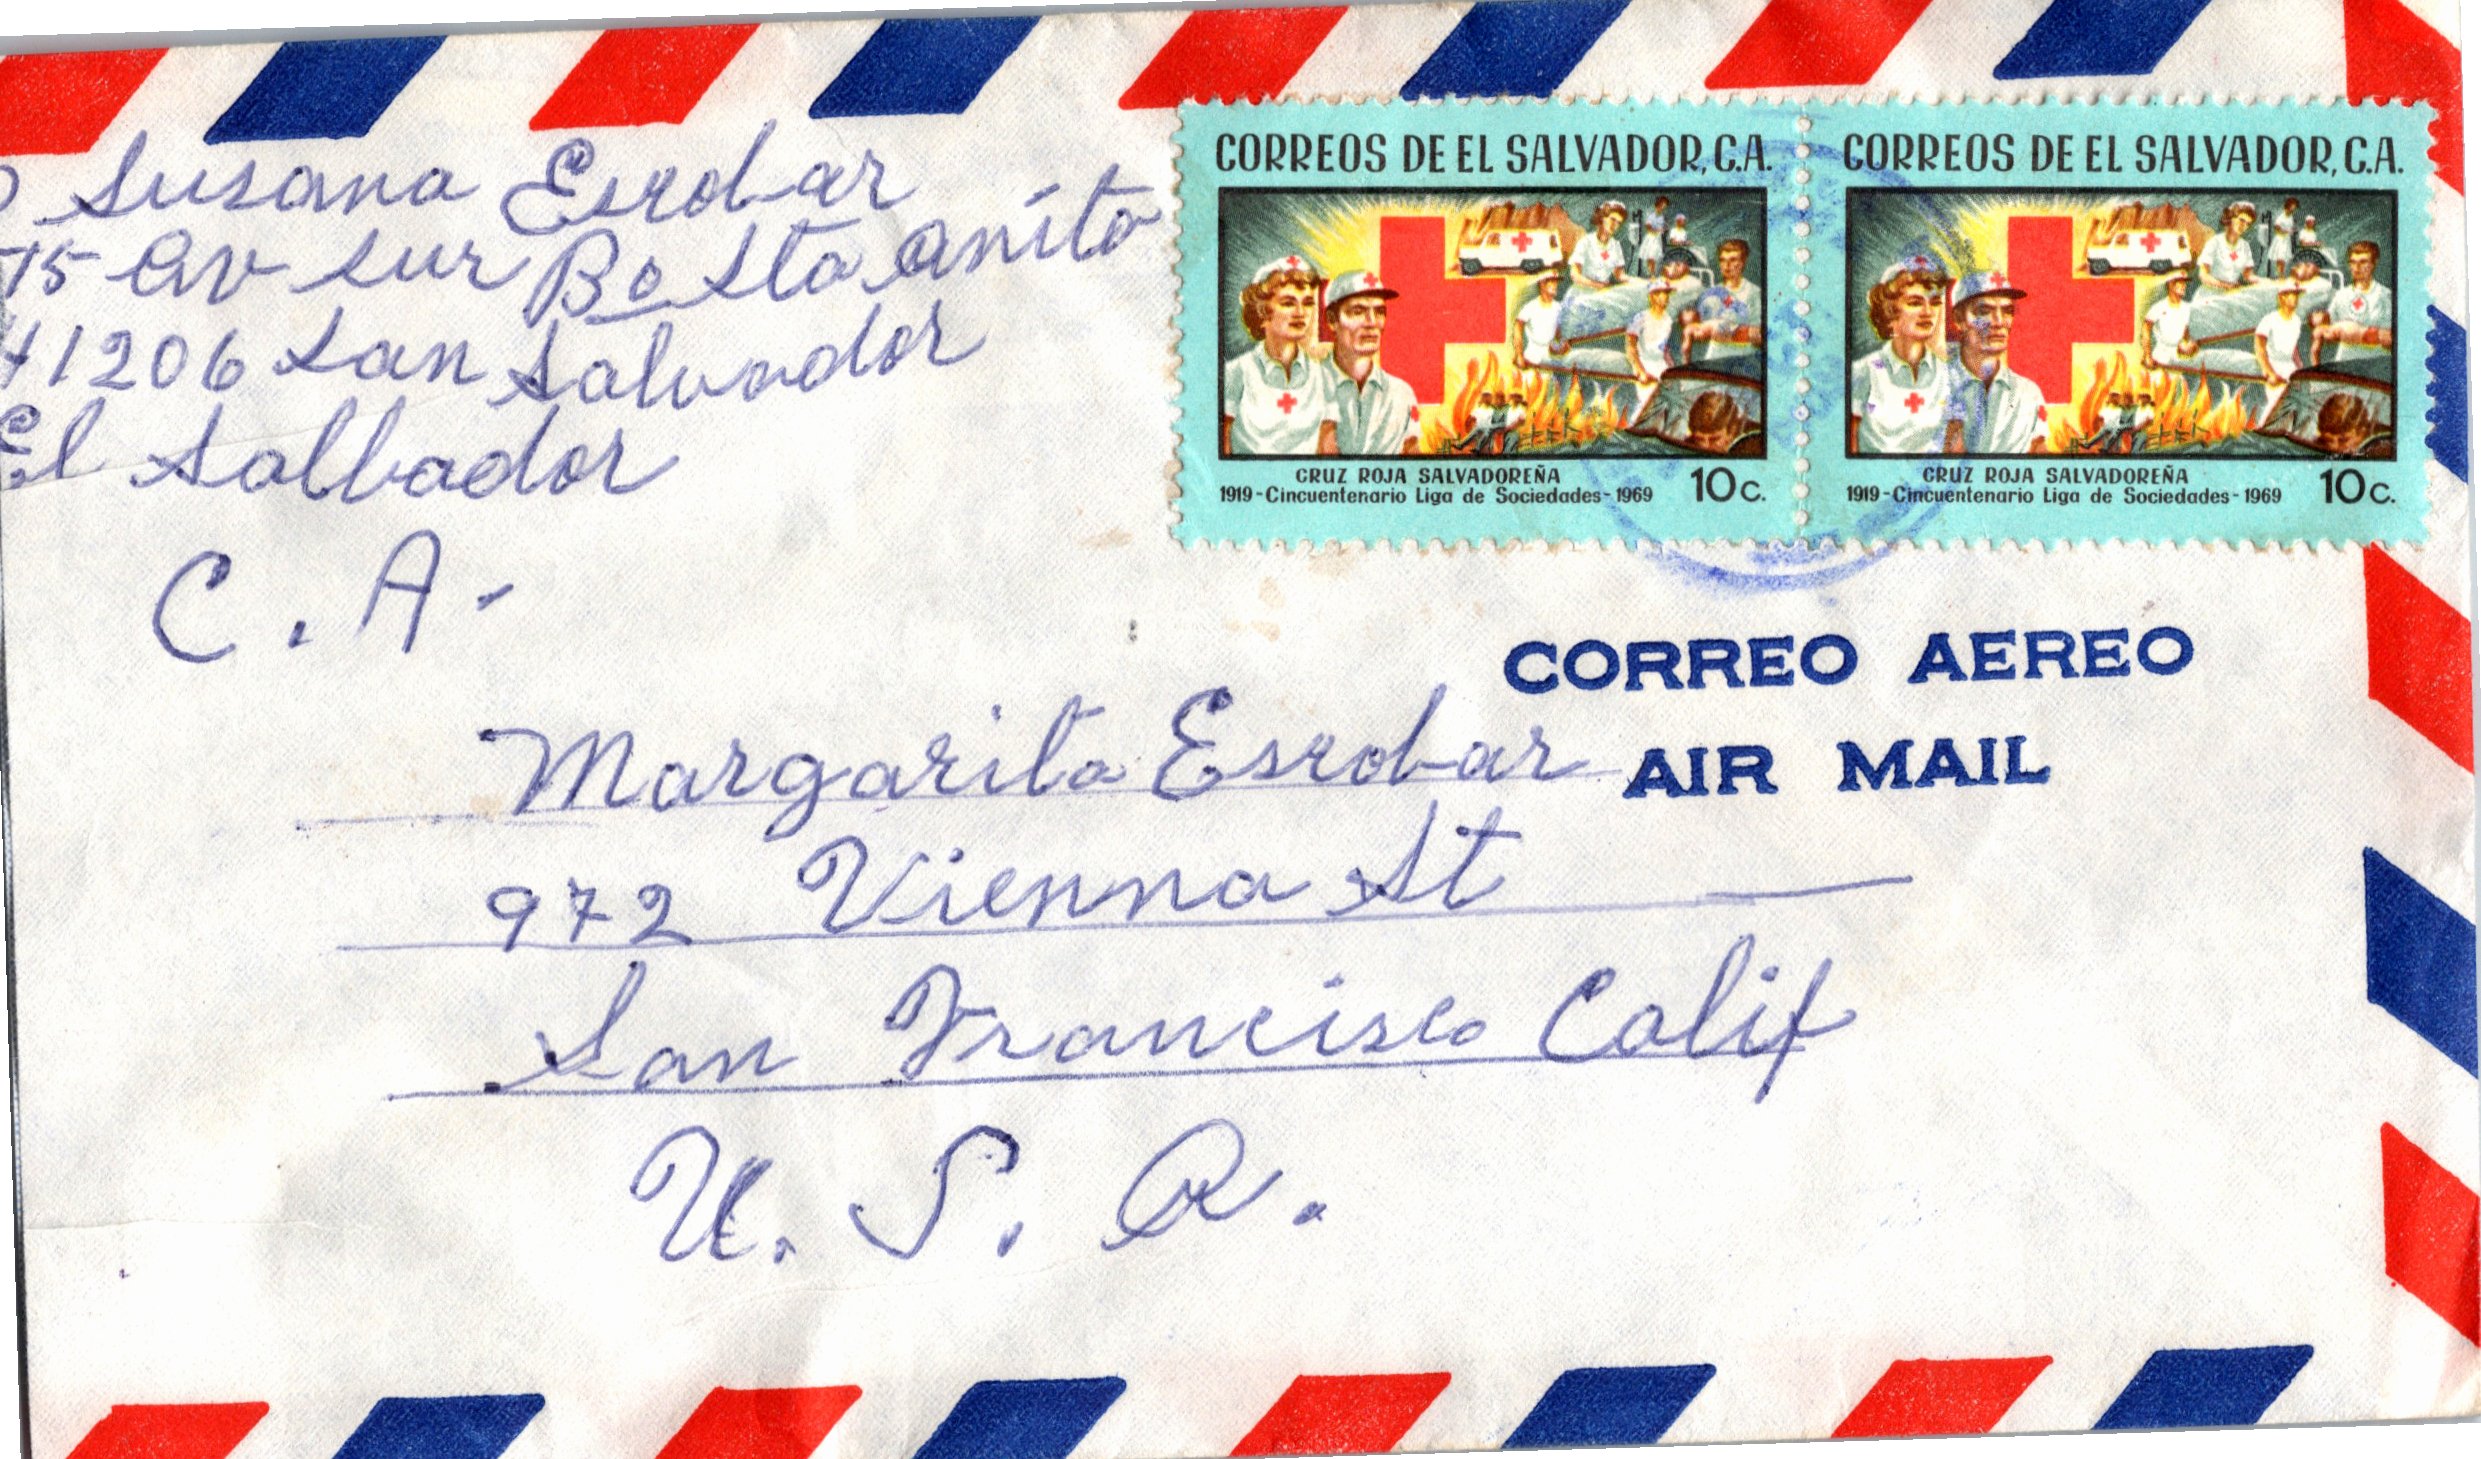 Susana Escobar
15 Av Sur Bo Sta Anita
1206 San Salvador
El Salbador
C. A.
CORREOS DE EL SALVADOR, C.A.
CRUZ ROJA SALVADOREÑA
1919 - Cincuentenario Liga de Sociedades - 1969 10 c.
CORREOS DE EL SALVADOR, C.A.
CRUZ ROJA SALVADOREÑA
1919 - Cincuentenario Liga de Sociedades - 1969 10 c.
CORREO AEREO
AIR MAIL
Margarita Escobar
972 Vienna St
San Francisco Calif
U. S. A.